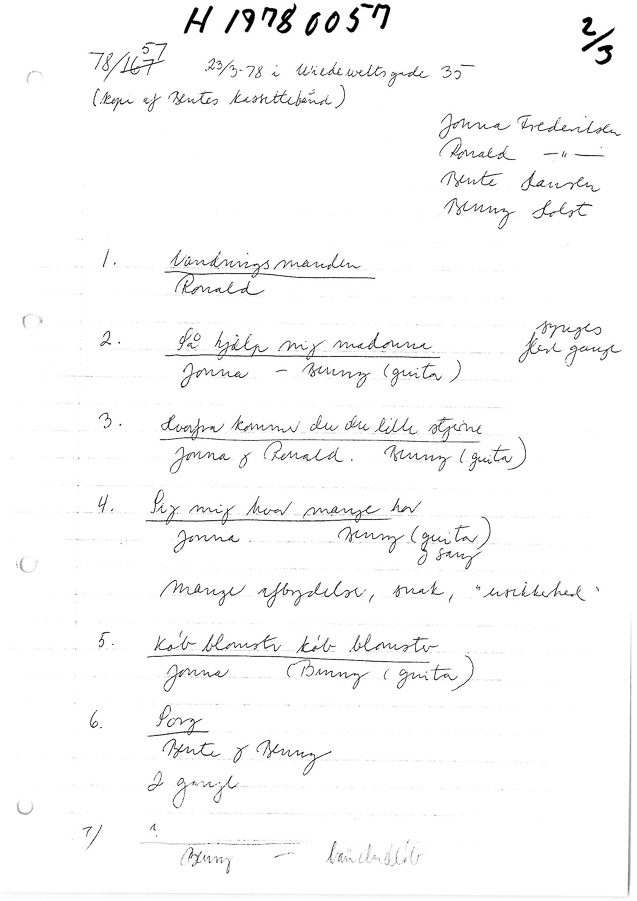 H 1978 0057
2/3
57
78/167 23/3-78 i Wiedeweltsgade 35
(Kopi af Bentes Kassettebånd)
Jonna Frederiksen
Ronald —"—
Bente Hansen
Benny Holst
1. Vandringsmanden
Ronald
2. Så hjælp mig madonna
synges
flere gange
Jonna - Benny (guitar)
3. Hvorfra kommer du du lille stjerne
Jonna & Ronald. Benny (guitar)
4. Sig mig hvor mange har
Jonna. Benny (guitar)
& sang
mange afbrydelser, snak, "usikkerhed"
5. Køb blomster køb blomster
Jonna (Benny (guitar)
6. Sorg
Bente & Benny
2 gange
7/
Benny -